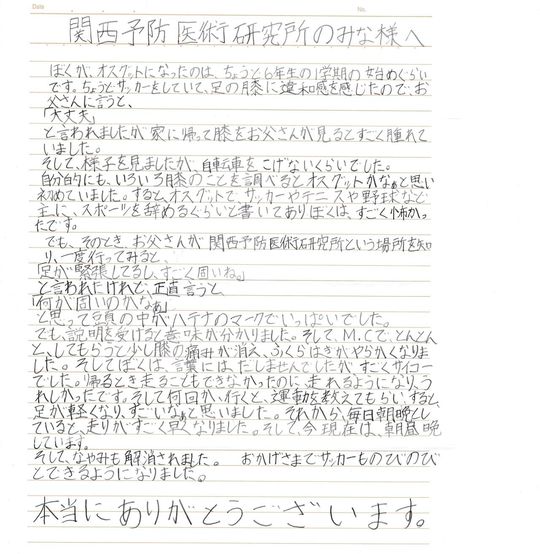 Date
No.
関西予防医術研究所のみな様へ
ぼくが、オスグットになったのは、ちょうど6年生の1学期の始めくらい
です。ちょうどサッカーをしていて、足の膝に違和感を感じたので、お
父さんに言うと、
「大丈夫」
と言われましたが家に帰って膝をお父さんが見るとすごく腫れて
いました。
そして、様子を見ましたが、自転車をこげないくらいでした。
自分的にも、いろいろ膝のことを調べるとオスグットかなぁと思い
初めていました。すると、オスグットで、サッカーやテニスや野球など
主に、スポーツを辞めるぐらいと書いてありぼくは、すごく怖かっ
たです。
でも、そのとき、お父さんが関西予防医術研究所という場所を知
り、一度行ってみると、
「足が緊張してるし、すごく固いね。」
と言われたけれど、正直言うと、
「何が固いのかなぁ」
と思って頭の中がハテナのマークでいっぱいでした。
でも、説明を受けると意味が分かりました。そして、M.Cで、とんとん
と、してもらうと少し膝の痛みが消え、ふくらはぎがやらかくなりま
した。そしてぼくは、言葉には、だしませんでしたが、すごくサイコー
でした。帰るとき走ることもできなかったのに、走れるようになり、う
れしかったです。そして何回か、行くと、運動を教えてもらい、すると、
足が軽くなり、すごいなぁと思いました。それから、毎日朝晩とし
ていると、走りがすごく早くなりました。そして今現在は、朝昼晩
しています。
そして、なやみも解消されました。 おかげさまでサッカーものびのび
とできるようになりました。
本当にありがとうございます。